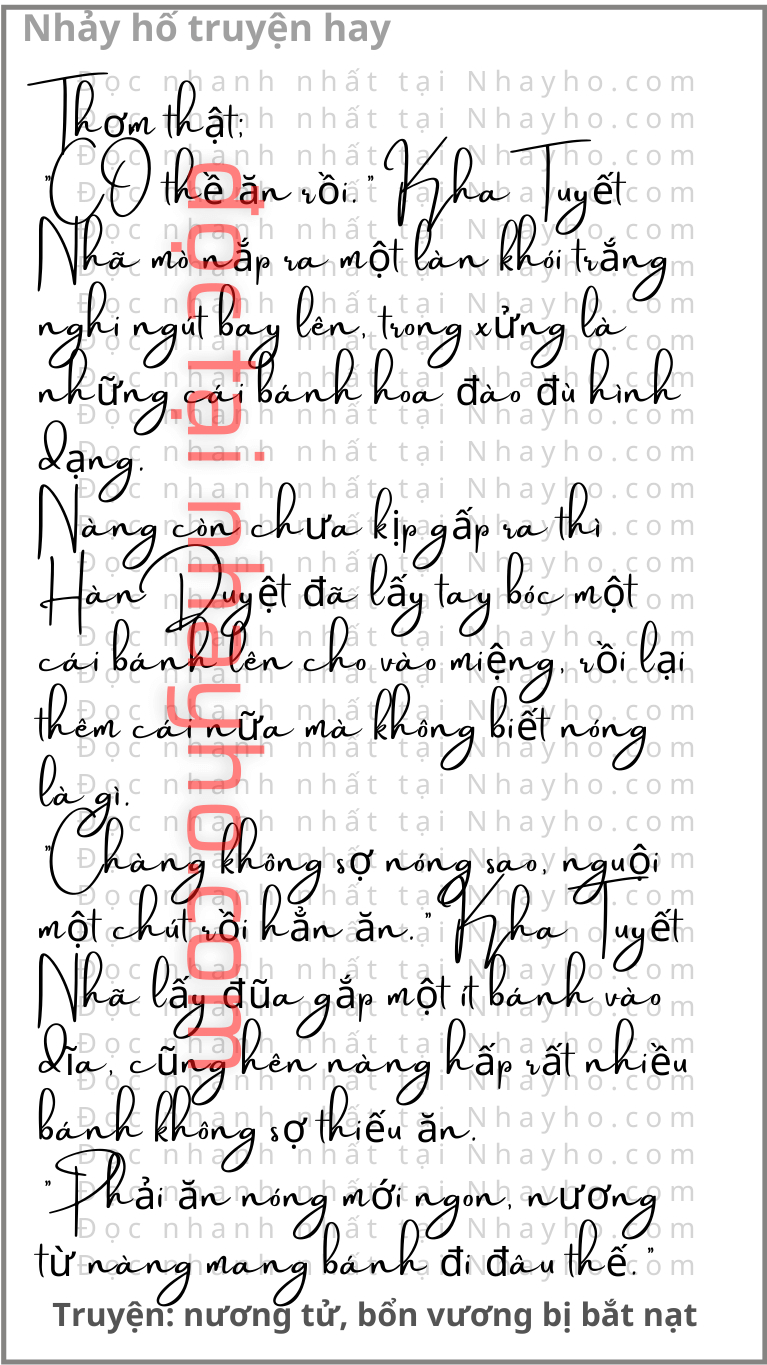 Nhảy hố truyện hay
Thơm thật;
"CÓ thề ăn rồi." Kha Tuyết
Nhã mò nắp ra một làn khói trắng
nghi ngút bay lên, trong xửng là
những cái bánh hoa đào đù hình
dạng.
Nàng còn chưa kịp gấp ra thì
Hàn Duyệt đã lấy tay bóc một
cái bánh lên cho vào miệng, rồi lại
thêm cái nữa mà không biết nóng
là gì.
"Chàng không sợ nóng sao, nguội
một chút rồi hẳn ăn." Kha Tuyết
Nhã lấy đũa gắp một ít bánh vào
dĩa, cũng hên nàng hấp rất nhiều
bánh không sợ thiếu ăn.
"Phải ăn nóng mới ngon, nương
từ nàng mang bánh đi đâu thế."
Truyện: nương tử, bổn vương bị bắt nạt
đọc tại nhayho.com
Đọc nhanh nhất tại Nhayho.com